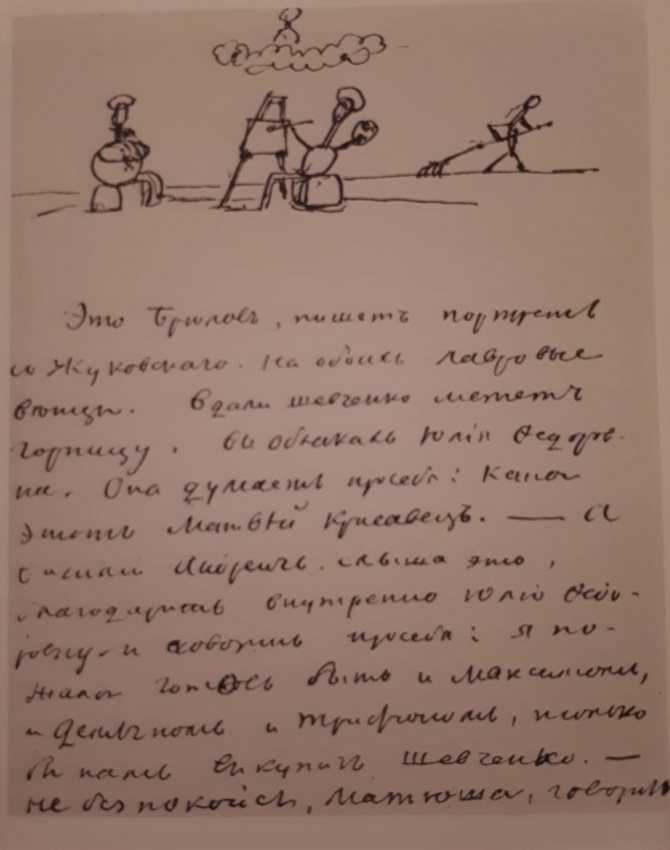 Это Брюловъ, пишетъ портретъ
съ Жуковскаго. На обоихъ лавровые
вѣнцы. Вдали Шевченко мететъ
горницу. Въ облакахъ Юлія Ѳедоров-
на. Она думаетъ просебя: Какой
этотъ Матвѣй Красавецъ. — А
Василій Андреичь слыша это,
благодаритъ внутренно Юлію Ѳедо-
ровну и говоритъ просебя: я по-
жалуй готовъ быть и Максимомъ,
и Демьяномъ и Трифономъ, только
бы намъ выкупить Шевченко. —
Не безпокойсь, Матюша, говоритъ